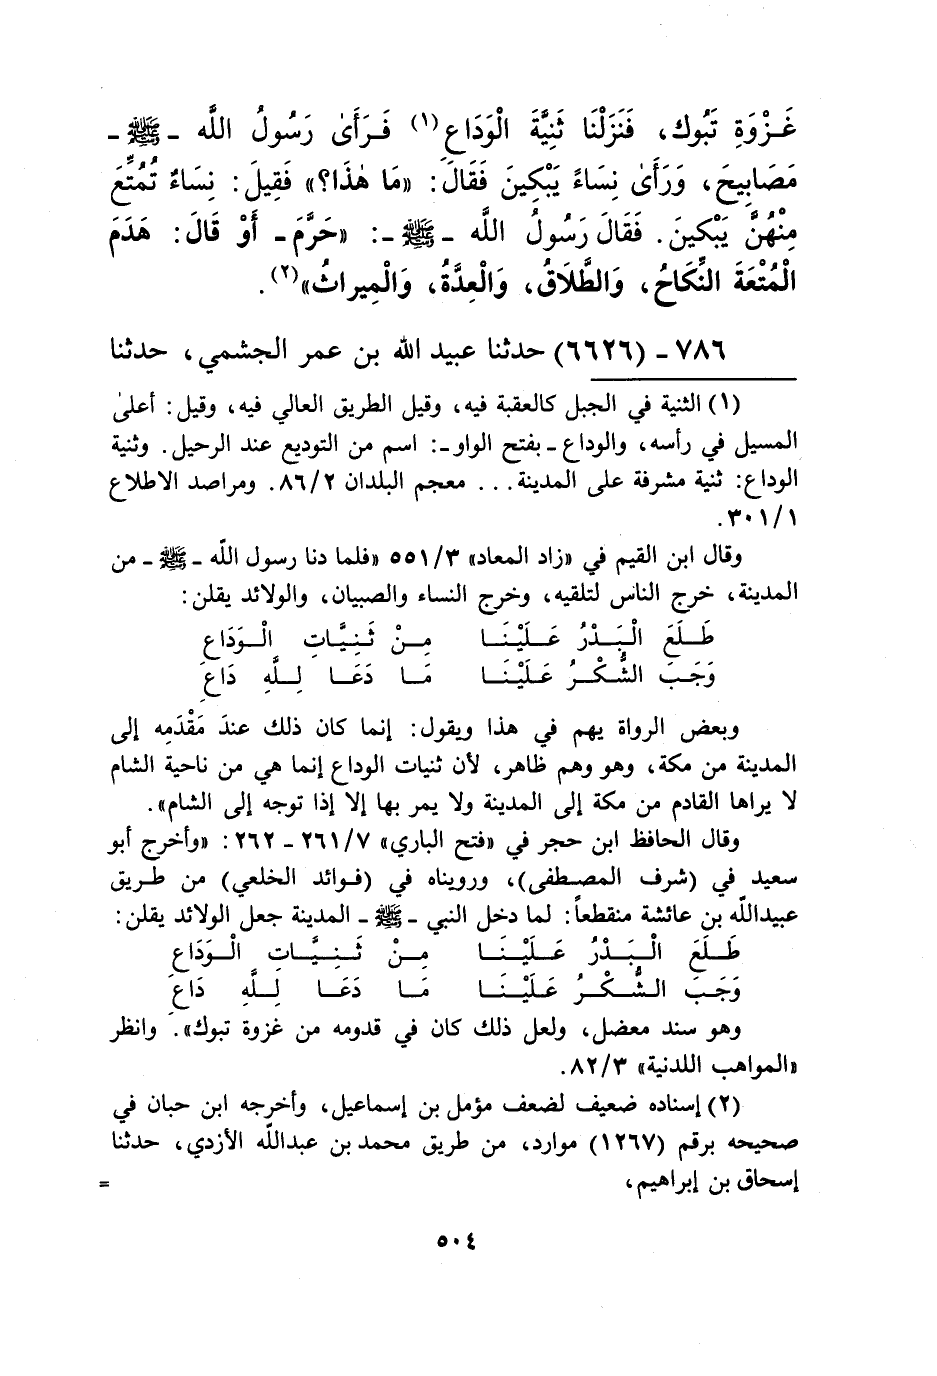 غَـزْوَةِ تَبُوك، فَنَزَلْنَا ثَنِيَّةَ الْوَدَاعِ(١) فَـرَأَىٰ رَسُولُ اللَّه ـ ﷺ ـ
مَصَابِيحَ، وَرَأَىٰ نِسَاءً يَبْكِينَ فَقَالَ: «مَا هٰذَا؟» فَقِيلَ: نِسَاءٌ تُمُتِّعَ
مِنْهُنَّ يَبْكِينَ. فَقَالَ رَسُولُ اللَّه ـ ﷺ ـ: «حَرَّمَ ـ أَوْ قَالَ: هَدَمَ
الْمُتْعَةَ النِّكَاحُ، وَالطَّلَاقُ، وَالْعِدَّةُ، وَالْمِيراثُ»(٢).
٧٨٦ ـ (٦٦٢٦) حدثنا عبيد الله بن عمر الجشمي، حدثنا
(١) الثنية في الجبل كالعقبة فيه، وقيل الطريق العالي فيه، وقيل: أعلىٰ
المسيل في رأسه، والوداع ـ بفتح الواو ـ: اسم من التوديع عند الرحيل. وثنية
الوداع: ثنية مشرفة على المدينة... معجم البلدان ٨٦/٢. ومراصد الاطلاع
٣٠١/١.
وقال ابن القيم في «زاد المعاد» ٥٥١/٣ «فلما دنا رسول اللَّه ـ ﷺ ـ من
المدينة، خرج الناس لتلقيه، وخرج النساء والصبيان، والولائد يقلن:
طَلَعَ الْبَدْرُ عَلَيْنَا مِنْ ثَنِيَّاتِ الْوَدَاعِ
وَجَبَ الشُّكْرُ عَلَيْنَا مَا دَعَا لِلَّهِ دَاعِ
وبعض الرواة يهم في هذا ويقول: إنما كان ذلك عندَ مَقْدَمِه إلى
المدينة من مكة، وهو وهم ظاهر، لأن ثنيات الوداع إنما هي من ناحية الشام
لا يراها القادم من مكة إلى المدينة ولا يمر بها إلا إذا توجه إلى الشام».
وقال الحافظ ابن حجر في «فتح الباري» ٢٦١/٧ ـ ٢٦٢: «وأخرج أبو
سعيد في (شرف المصطفى)، ورويناه في (فوائد الخلعي) من طريق
عبيداللَّه بن عائشة منقطعاً: لما دخل النبي ـ ﷺ ـ المدينة جعل الولائد يقلن:
طَلَعَ الْبَدْرُ عَلَيْنَا مِنْ ثَنِيَّاتِ الْوَدَاعِ
وَجَبَ الشُّكْرُ عَلَيْنَا مَا دَعَا لِلَّهِ دَاعِ
وهو سند معضل، ولعل ذلك كان في قدومه من غزوة تبوك». وانظر
«المواهب اللدنية» ٨٢/٣.
(٢) إسناده ضعيف لضعف مؤمل بن إسماعيل، وأخرجه ابن حبان في
صحيحه برقم (١٢٦٧) موارد، من طريق محمد بن عبداللَّه الأزدي، حدثنا
إسحاق بن إبراهيم، =
٥٠٤